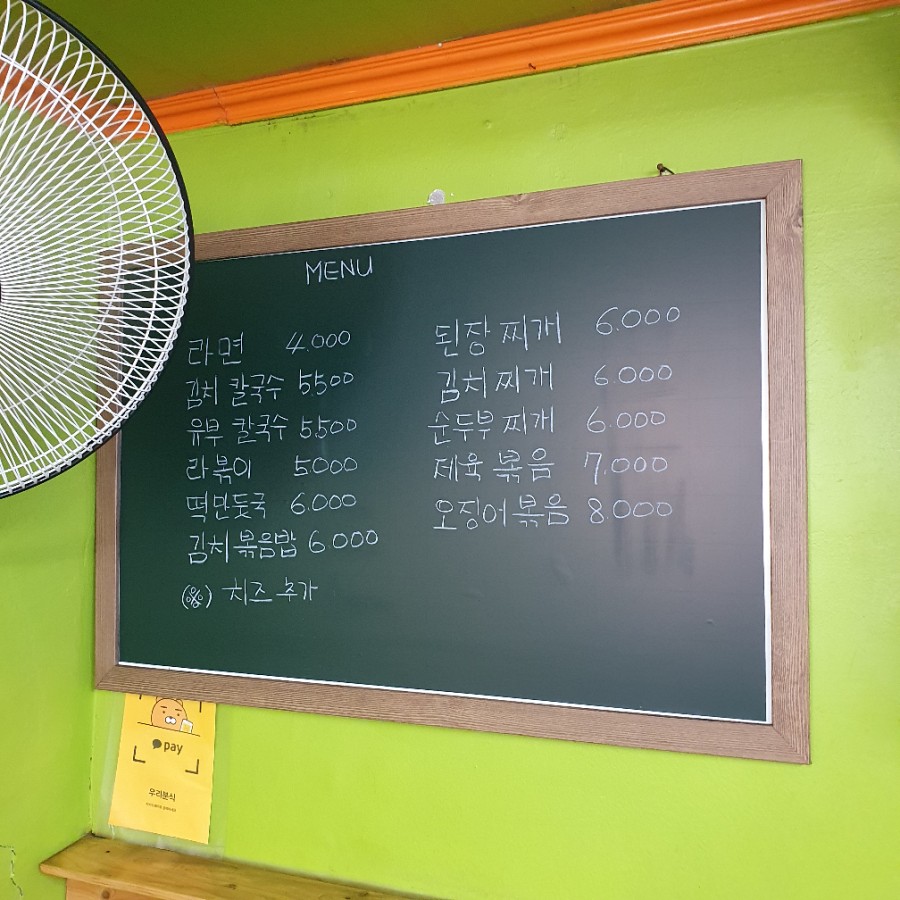 MENU
라면 4.000
김치 칼국수 5500
유부 칼국수 5.500
라볶이 5000
떡만둣국 6.000
김치볶음밥 6.000
(※) 치즈 추가
된장찌개 6.000
김치찌개 6.000
순두부찌개 6.000
제육볶음 7.000
오징어볶음 8.000
pay
우리분식